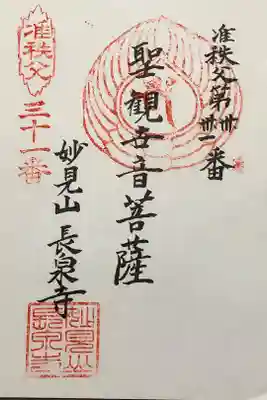 准秩父第卅一番
聖観世音菩薩
妙見山 長泉寺
准秩父
三十一番
妙見山
長泉寺